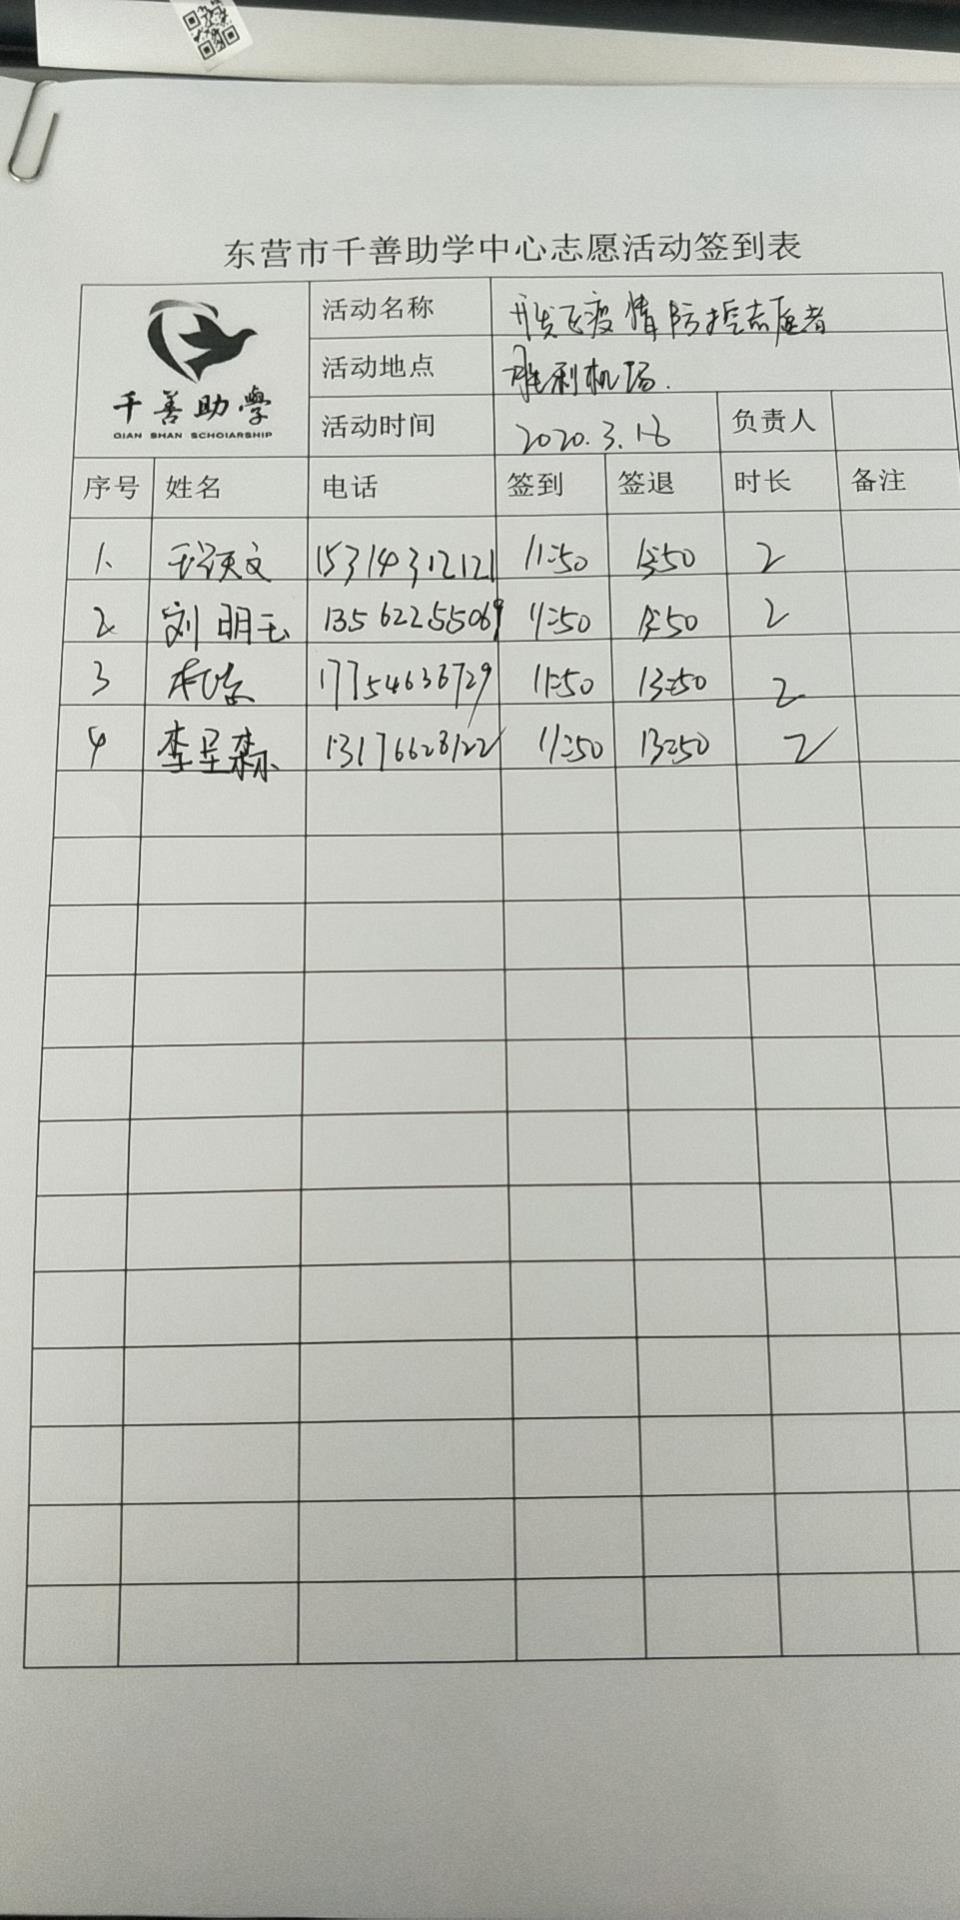 东营市千善助学中心志愿活动签到表
千善助學
QIAN SHAN SCHOIARSHIP
活动名称 开发区疫情防控志愿者
活动地点 胜利机场.
活动时间 2020.3.16 负责人
序号 姓名 电话 签到 签退 时长 备注
1、 文 15314312121 11:50 13:50 2
2 刘明玉 13562255069 11:50 13:50 2
3 17754636729 11:50 13:50 2
4 李星森 13176628122 11:50 13:50 2